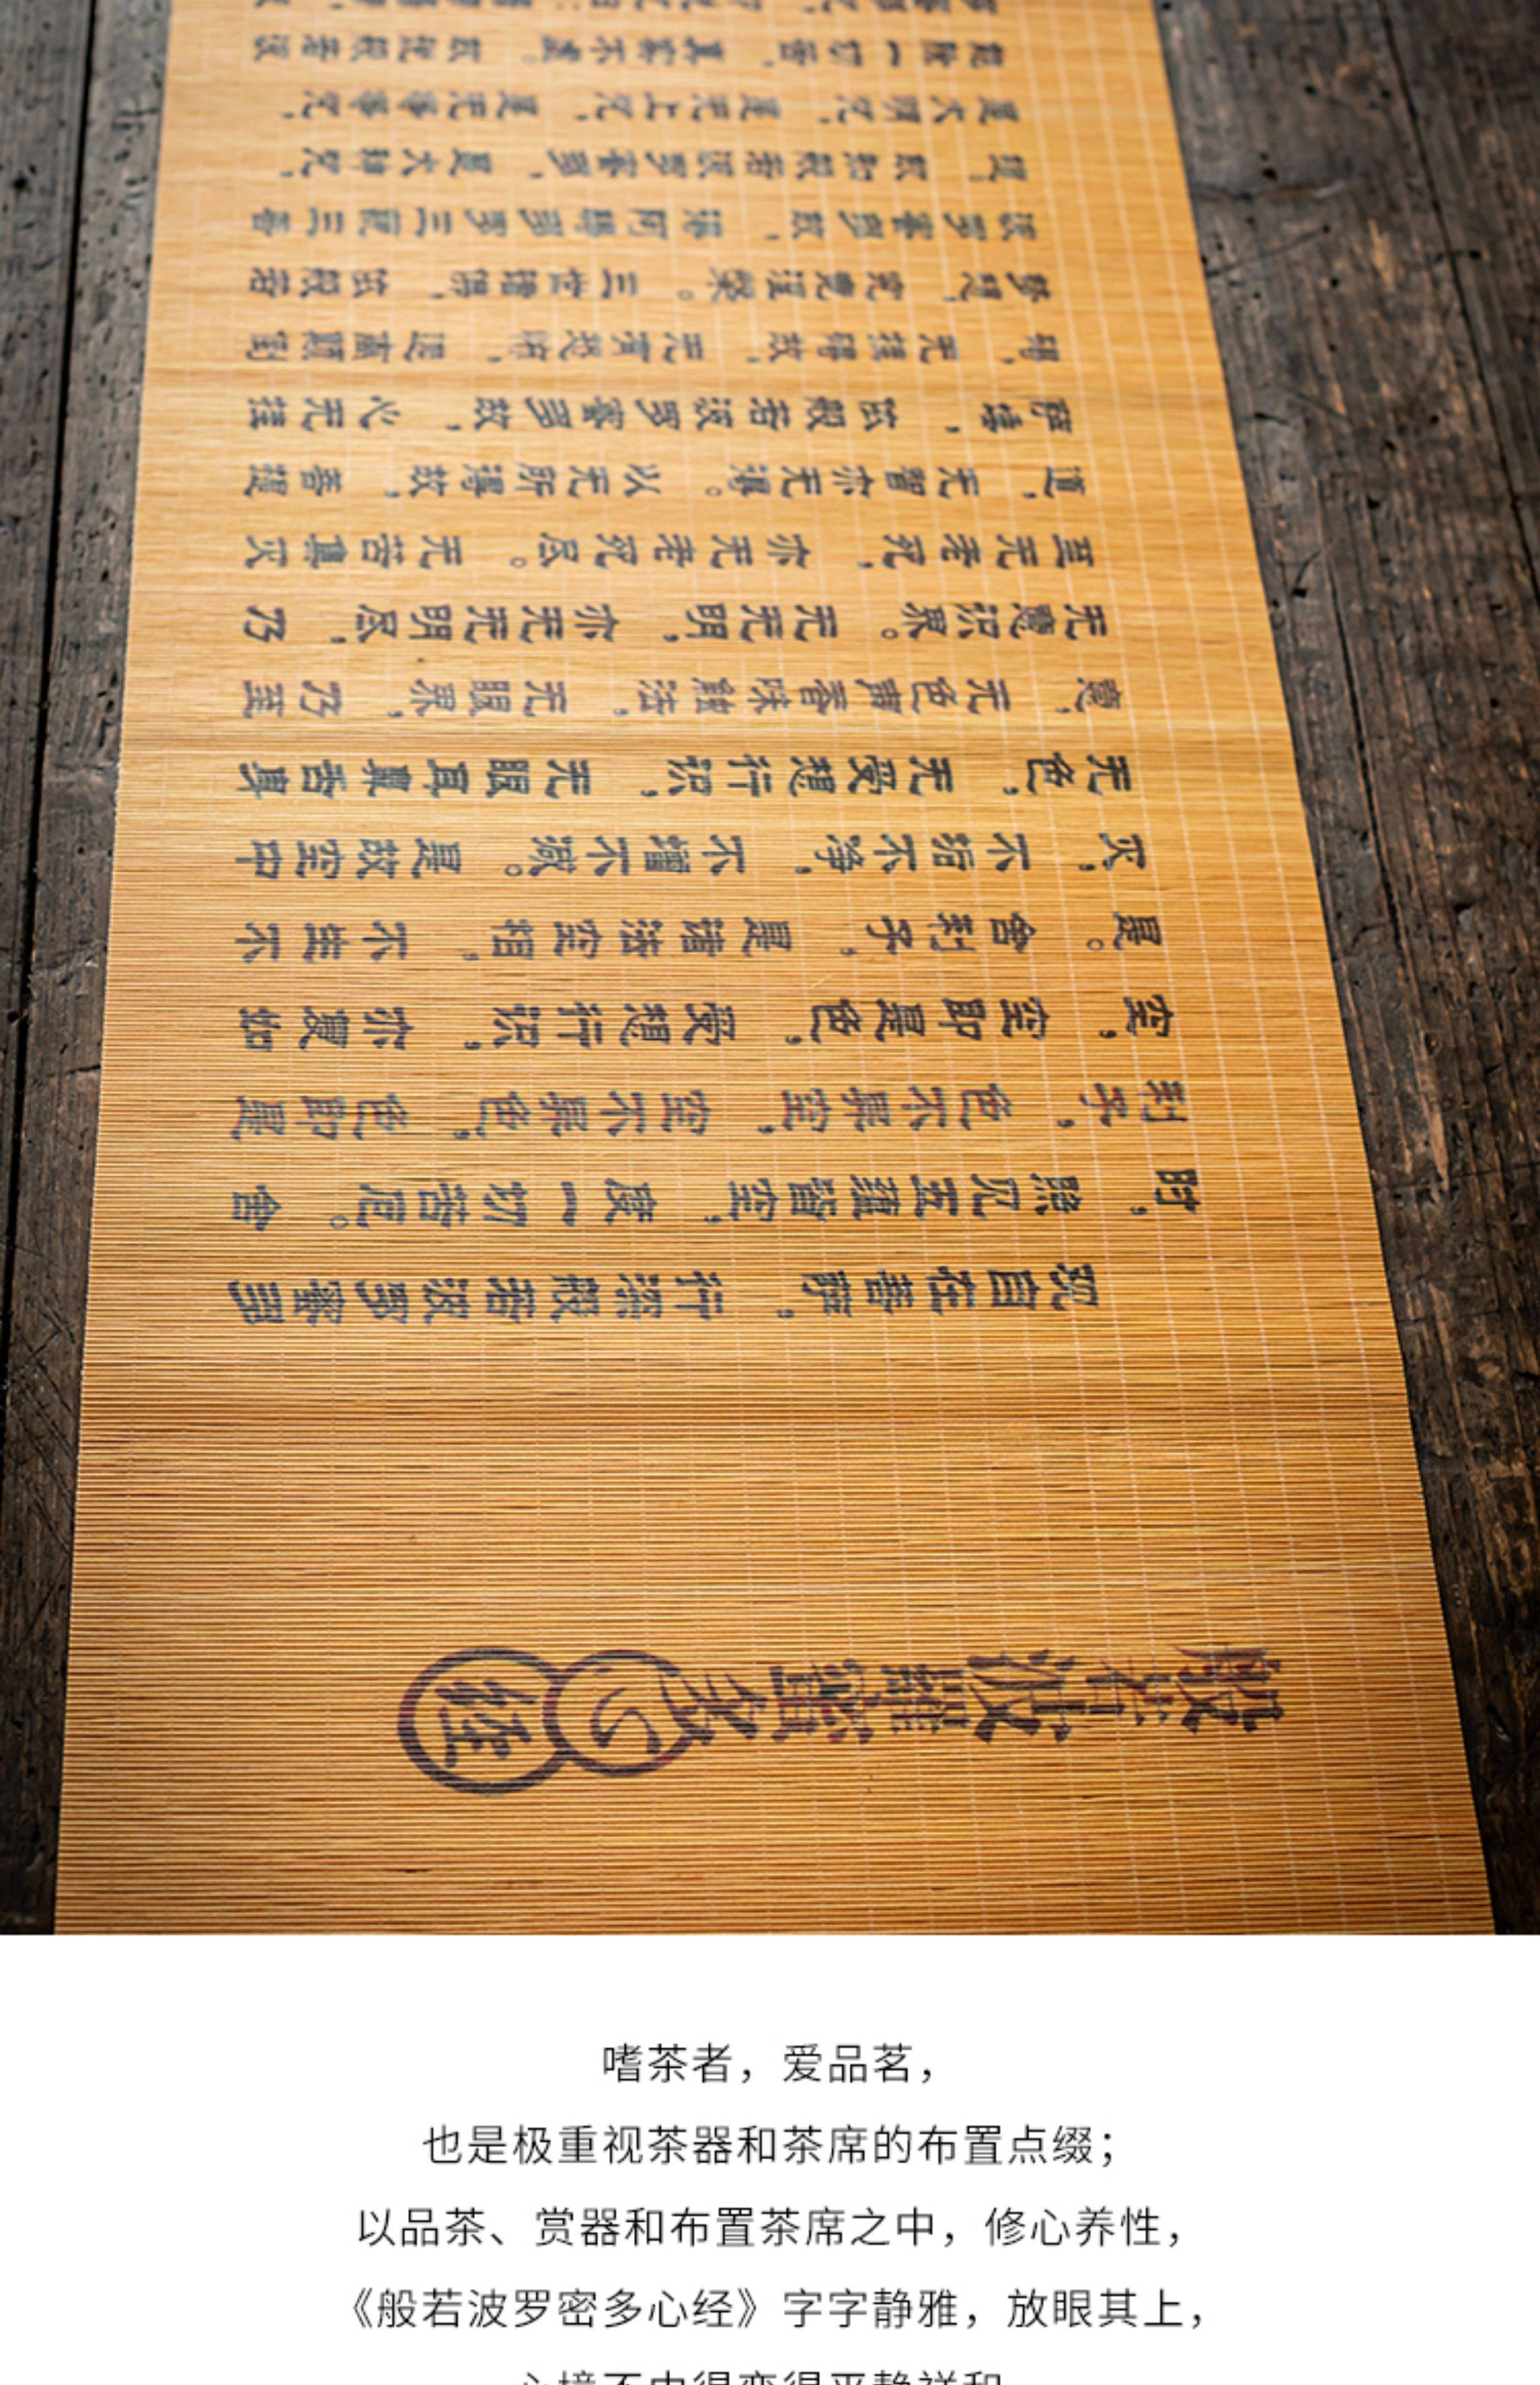 般若波羅蜜多心经
观自在菩萨，行深般若波罗蜜多
时，照见五蕴皆空，度一切苦厄。舍
利子，色不异空，空不异色，色即是
空，空即是色，受想行识，亦复如
是。舍利子，是诸法空相，不生不
灭，不垢不净，不增不减。是故空中
无色，无受想行识，无眼耳鼻舌身
意，无色声香味触法，无眼界，乃至
无意识界。无无明，亦无无明尽，乃
至无老死，亦无老死尽。无苦集灭
道，无智亦无得。以无所得故，菩提
萨埵，依般若波罗蜜多故，心无挂
碍，无挂碍故，无有恐怖，远离颠倒
梦想，究竟涅槃。三世诸佛，依般若
波罗蜜多故，得阿耨多罗三藐三菩
提，故知般若波罗蜜多，是大神咒，
是大明咒，是无上咒，是无等等咒，
能除一切苦，真实不虚。故说般若波
嗜茶者，爱品茗，
也是极重视茶器和茶席的布置点缀；
以品茶、赏器和布置茶席之中，修心养性，
《般若波罗密多心经》字字静雅，放眼其上，
心境不由得变得平静祥和